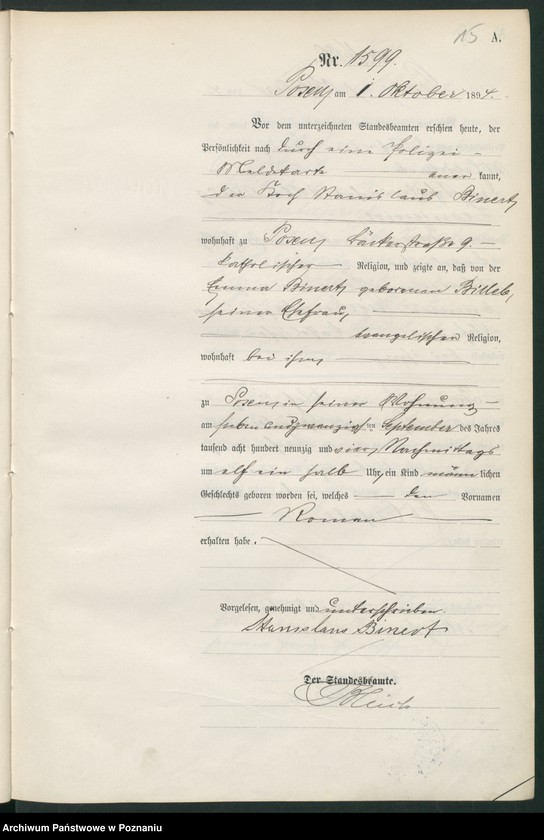 15 A.
Nr. 1599.
Posen am 1. Oktober 1894.
Vor dem unterzeichneten Standesbeamten erschien heute, der
Persönlichkeit nach durch eine Polizei-
Meldekarte anerkannt,
der Koch Stanislaus Binert,
wohnhaft zu Posen, Bäckerstraße 9.
katholischer Religion, und zeigte an, daß von der
Emma Binert, geborenen Billeb,
seiner Ehefrau,
evangelischer Religion,
wohnhaft bei ihm,
zu Posen, in seiner Wohnung
am sieben und zwanzigsten September des Jahres
tausend acht hundert neunzig und vier, Nachmittags
um elf ein halb Uhr, ein Kind männlichen
Geschlechts geboren worden sei, welches den Vornamen
Roman
erhalten habe.
Vorgelesen, genehmigt und unterschrieben.
Stanislaus Binert
Der Standesbeamte.
Archiwum Państwowe w Poznaniu